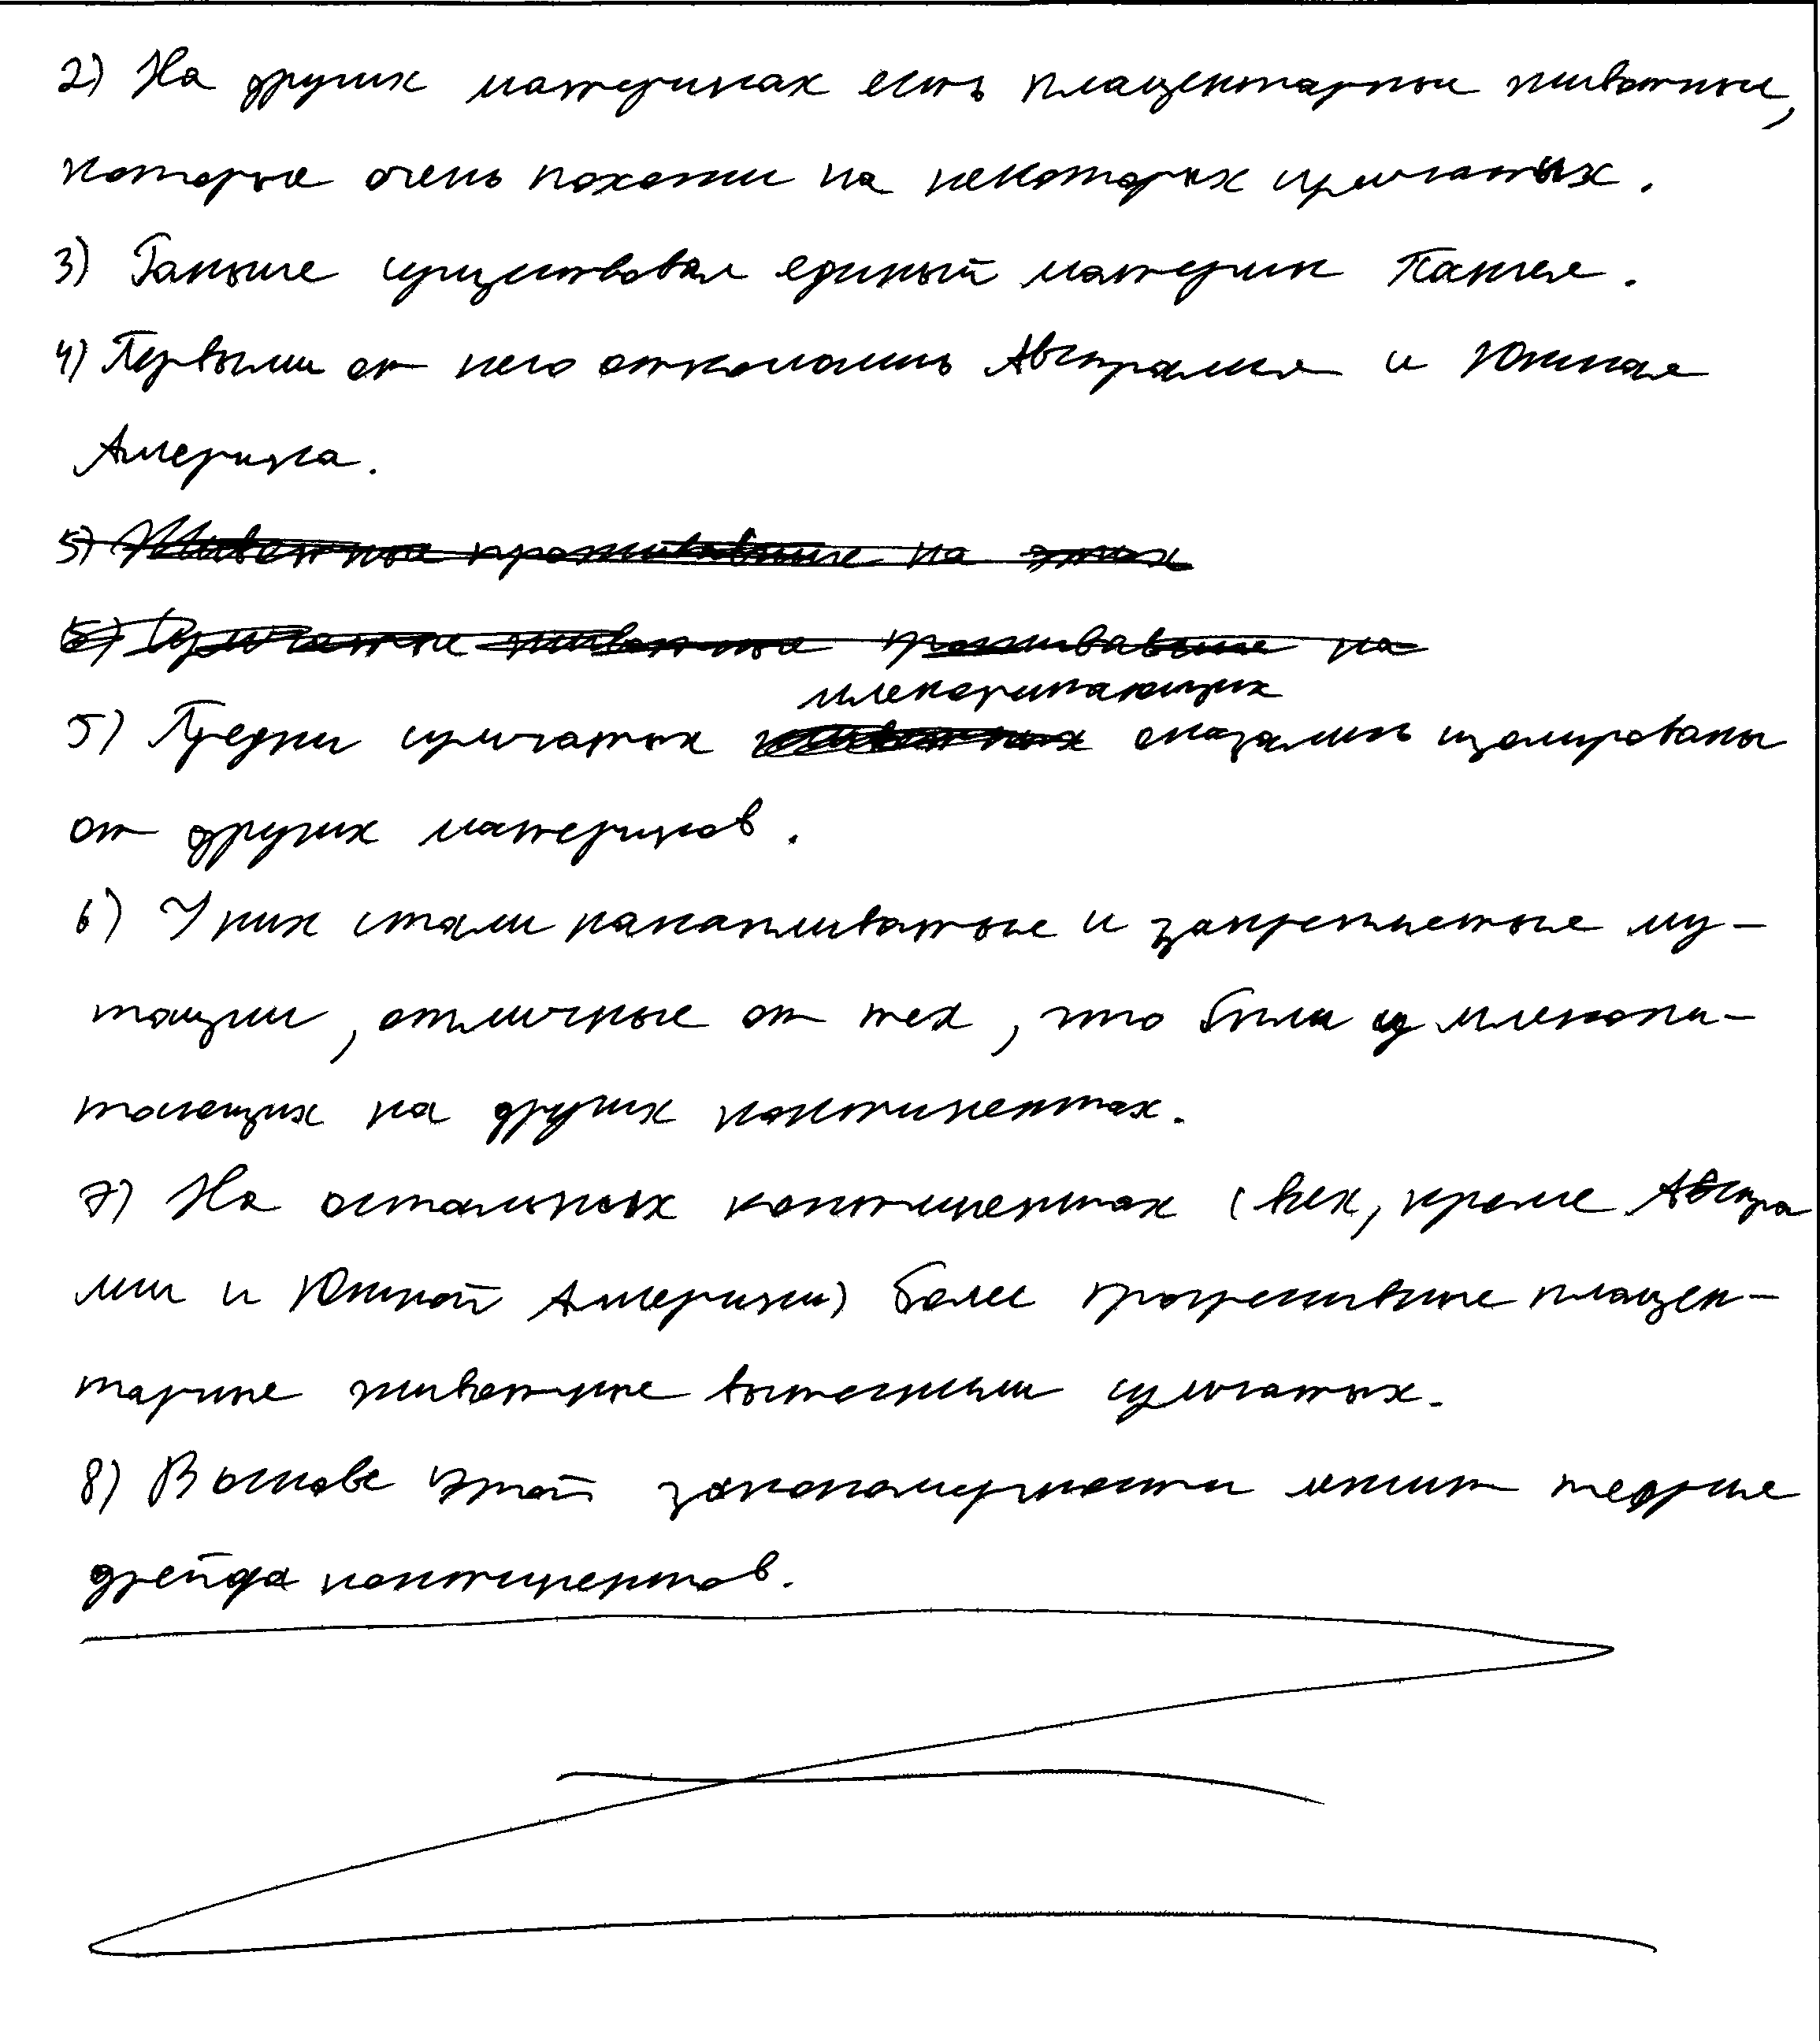 2) На других материках есть плацентарные животные,
которые очень похожи на некоторых сумчатых.
3) Раньше существовал единый материк Пангея.
4) Первыми от него откололись Австралия и Южная
Америка.
5) Животные проживавшие на этих
5) Сумчатые животные проживавшие на
млекопитающих
5) Предки сумчатых животных оказались изолированы
от других материков.
6) У них стали накапливаться и закрепляться му-
тации, отличные от тех, что были у млекопи-
тающих на других континентах.
7) На остальных континентах (всех, кроме Австра
лии и Южной Америки) более прогрессивные плацен-
тарные животные вытеснили сумчатых.
8) В основе этой закономерности лежит теория
дрейфа континентов.